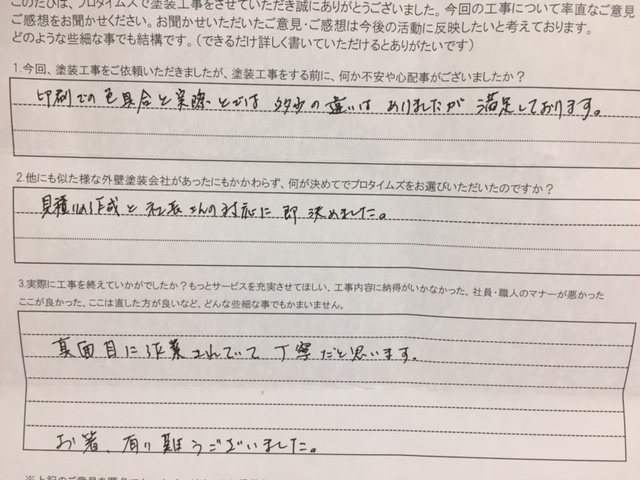 このたびは、プロタイムズで塗装工事をさせていただき誠にありがとうございました。今回の工事について率直なご意見
ご感想をお聞かせください。お聞かせいただいたご意見・ご感想は今後の活動に反映したいと考えております。
どのような些細な事でも結構です。(できるだけ詳しく書いていただけるとありがたいです)
1.今回、塗装工事をご依頼いただきましたが、塗装工事をする前に、何か不安や心配事がございましたか?
印刷での色具合と実際とでは 多少の違いは ありましたが 満足しております。
2.他にも似た様な外壁塗装会社があったにもかかわらず、何が決めてでプロタイムズをお選びいただいたのですか?
見積りの作成と社長さんの対応に即決めました。
3.実際に工事を終えていかがでしたか?もっとサービスを充実させてほしい、工事内容に納得がいかなかった、社員・職人のマナーが悪かった
ここが良かった、ここは直した方が良いなど、どんな些細な事でもかまいません。
真面目に作業されていて 丁寧だと思います。
お箸、有り難うございました。